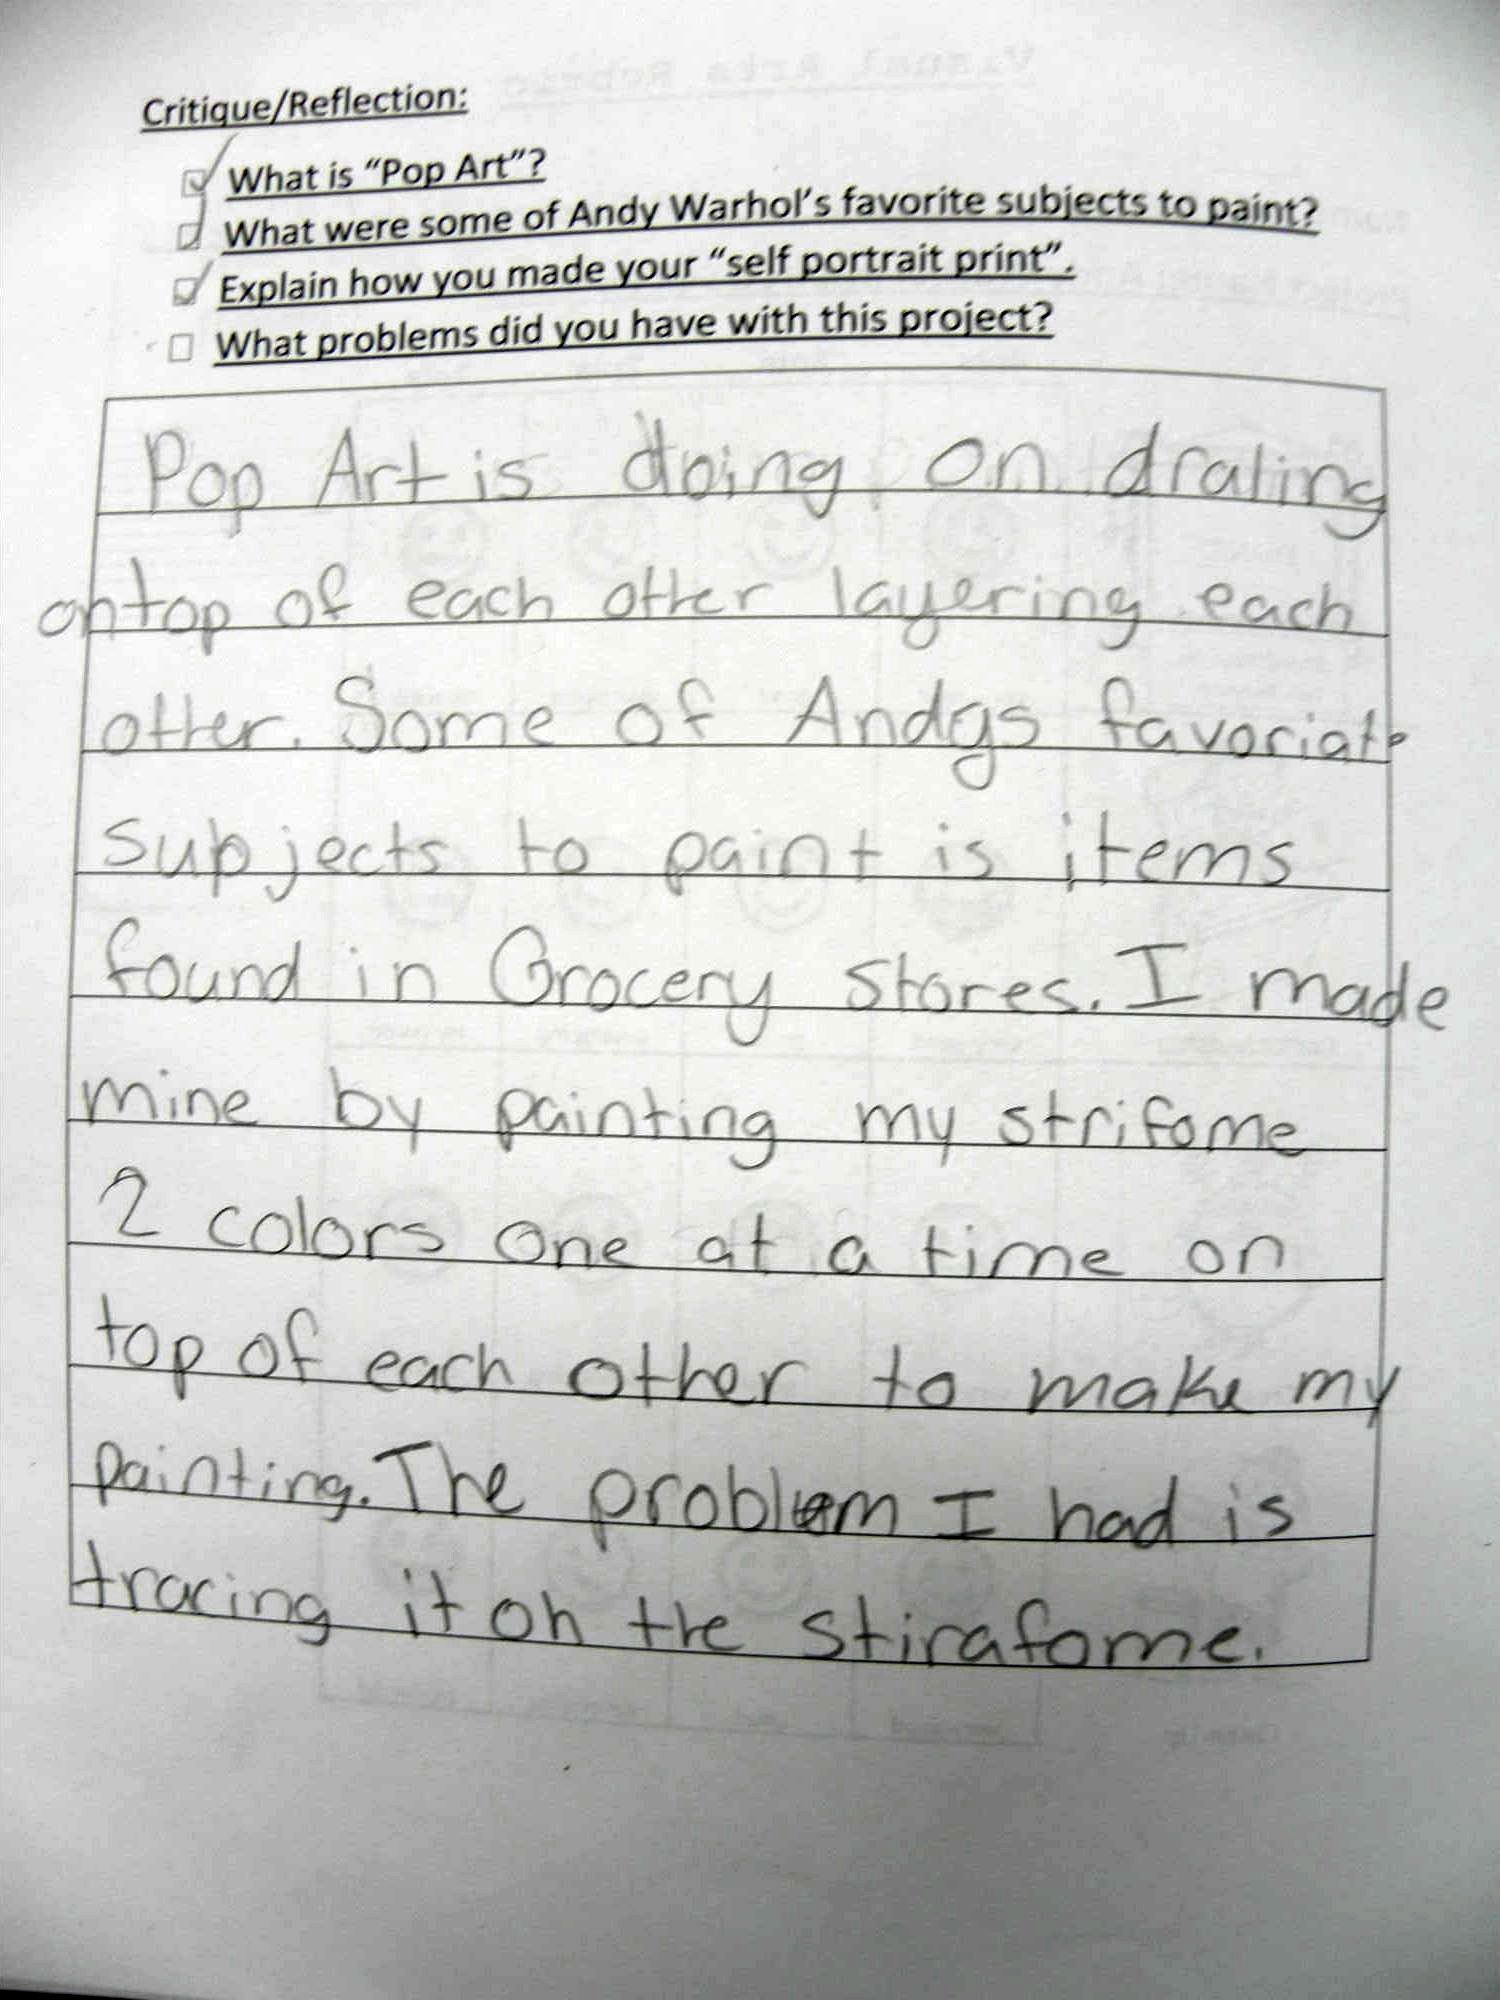 Critique/Reflection:
What is “Pop Art”?
What were some of Andy Warhol’s favorite subjects to paint?
Explain how you made your “self portrait print”.
What problems did you have with this project?
Pop Art is doing on draling
ontop of each otter layering each
otter. Some of Andys favoriate
subjects to paint is items
found in Grocery Stores. I made
mine by painting my strifome
2 colors one at a time on
top of each other to make my
painting. The problem I had is
tracing it on the stirafome.